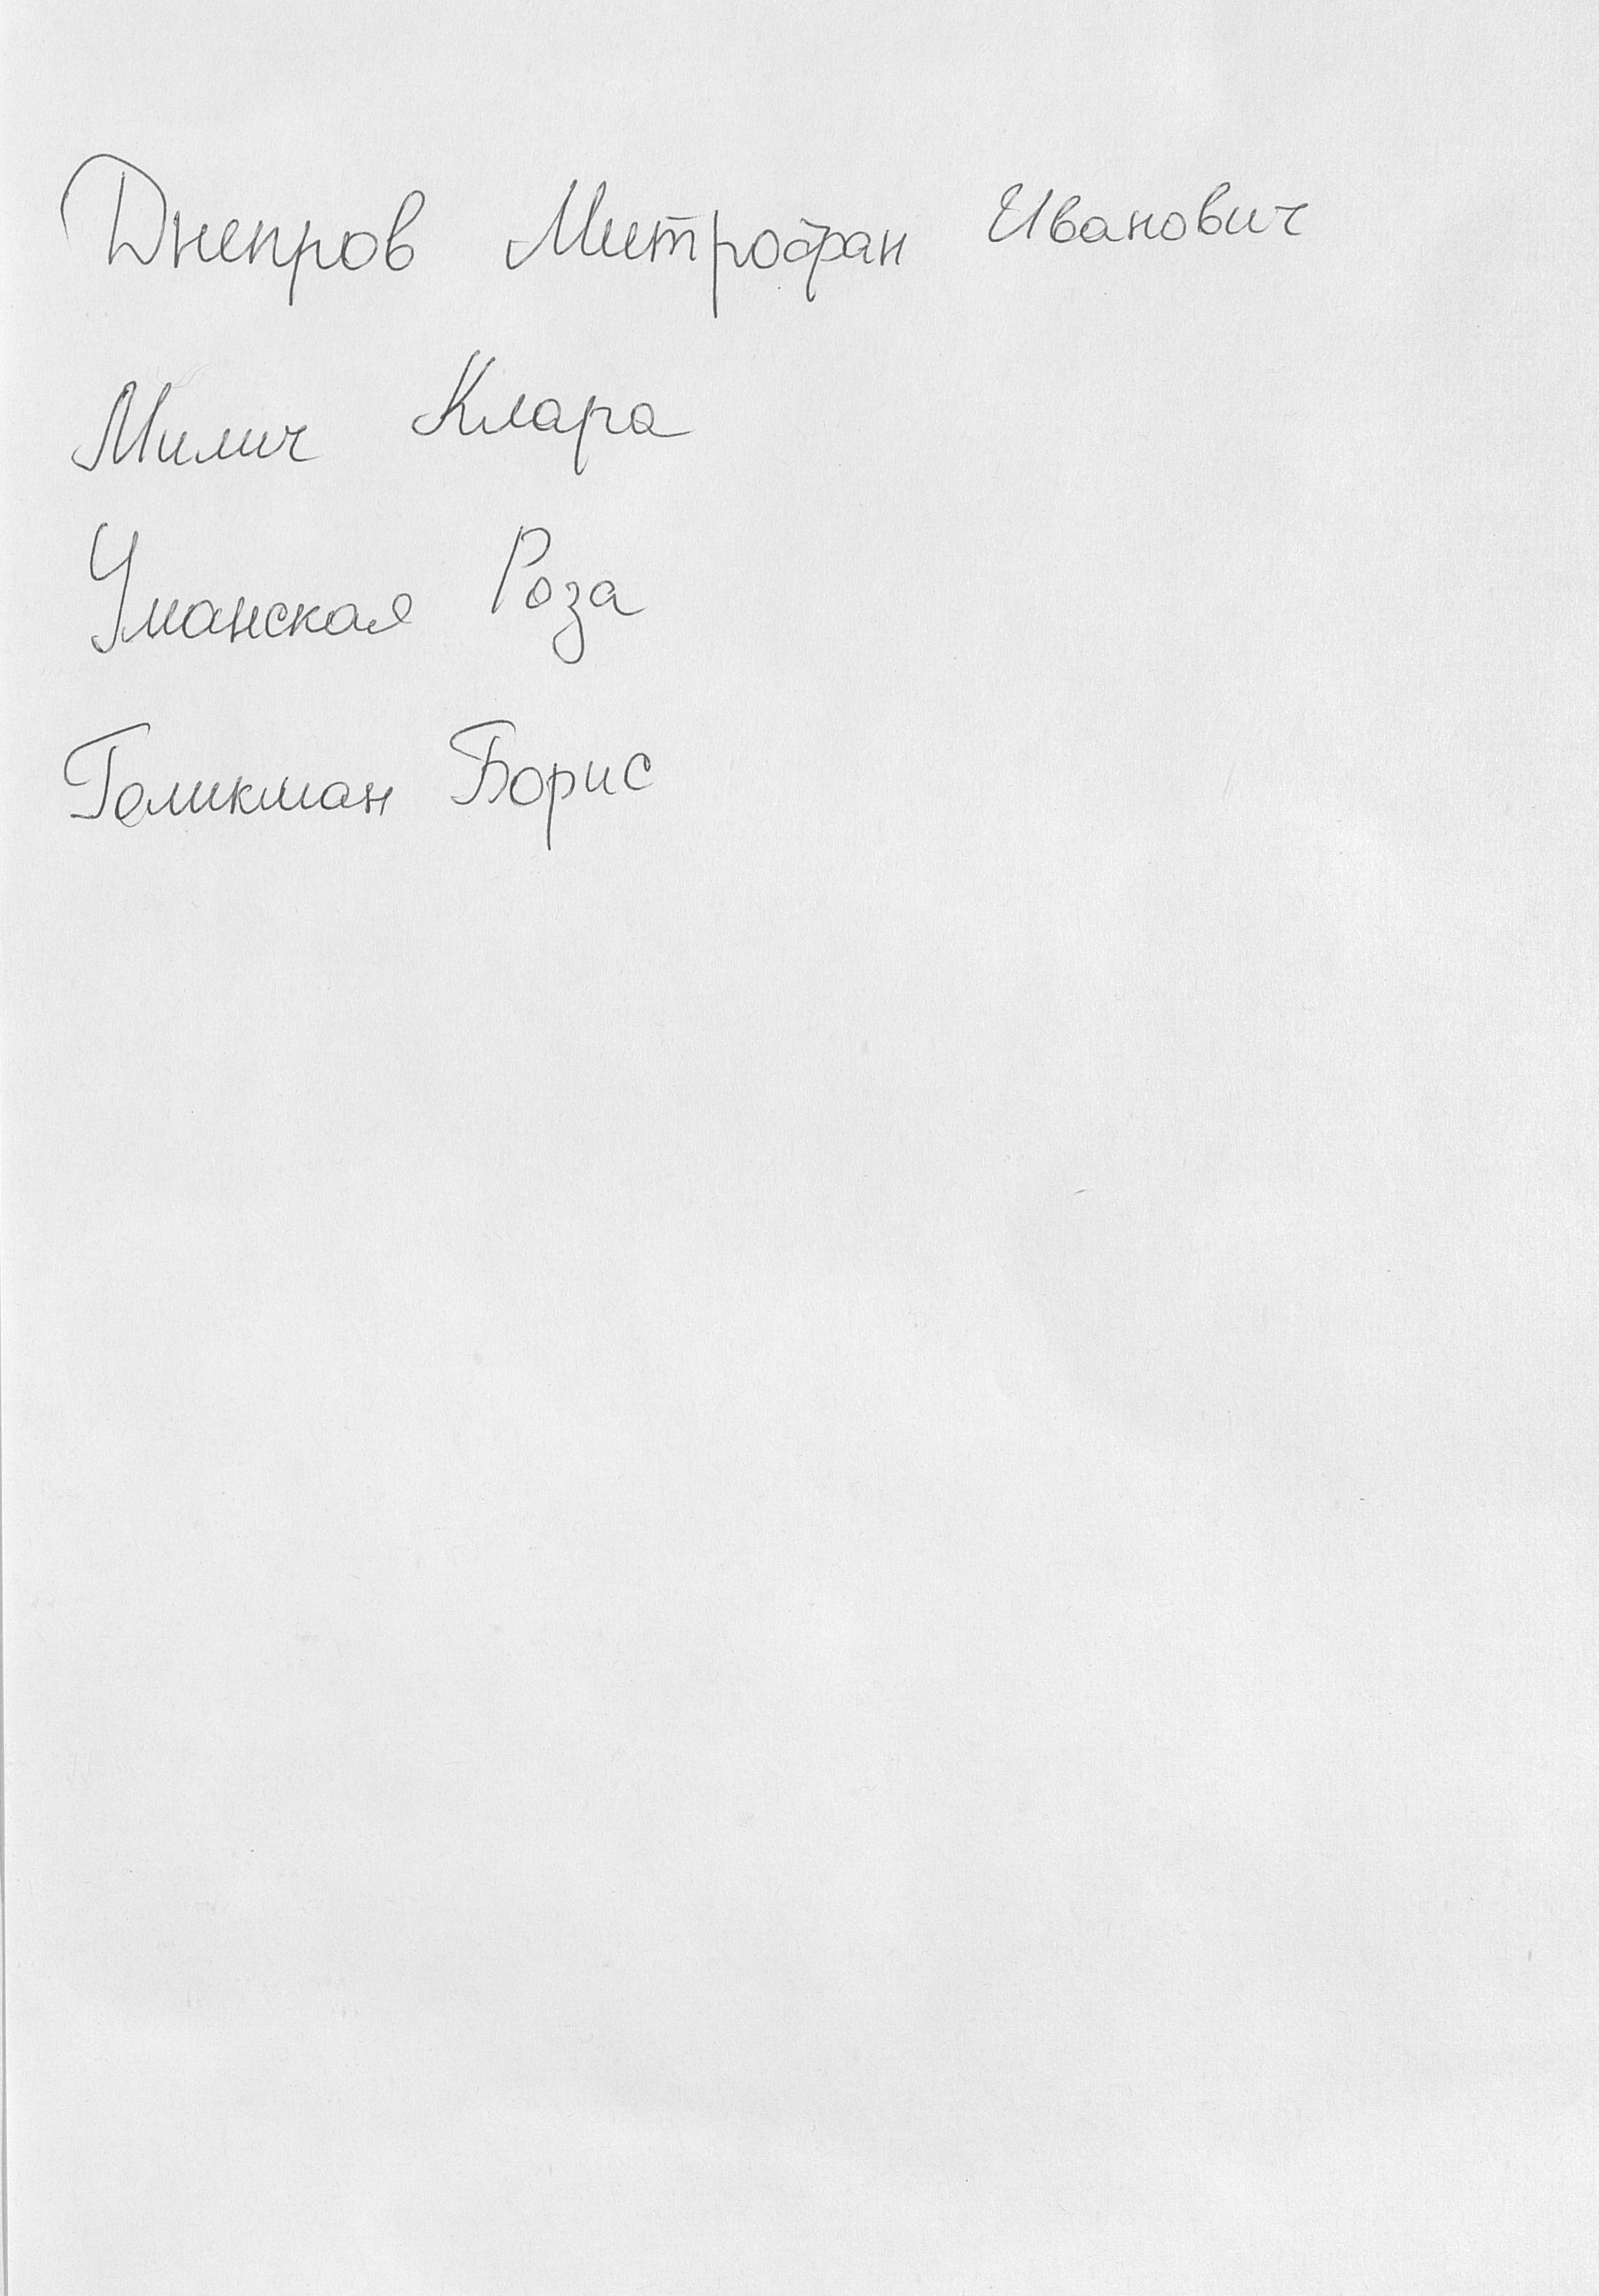 Днепров Митрофан Иванович
Милич Клара
Уманская Роза
Гомикман Борис